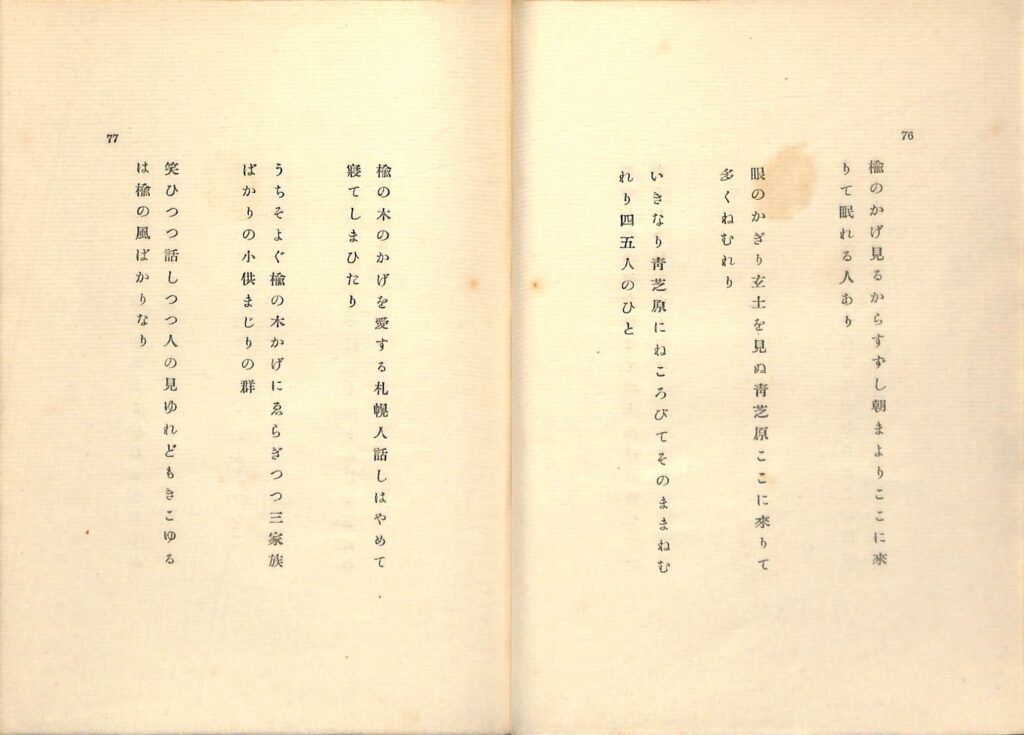 76
楡のかげ見るからすずし朝まよりここに來
りて眠れる人あり
眼のかぎり玄土を見ぬ靑芝原ここに來りて
多くねむれり
いきなり靑芝原にねころびてそのままねむ
れり四五人のひと
77
楡の木のかげを愛する札幌人話しはやめて
寢てしまひたり
うちそよぐ楡の木かげにゑらぎつつ三家族
ばかりの小供まじりの群
笑ひつつ話しつつ人の見ゆれどもきこゆる
は楡の風ばかりなり